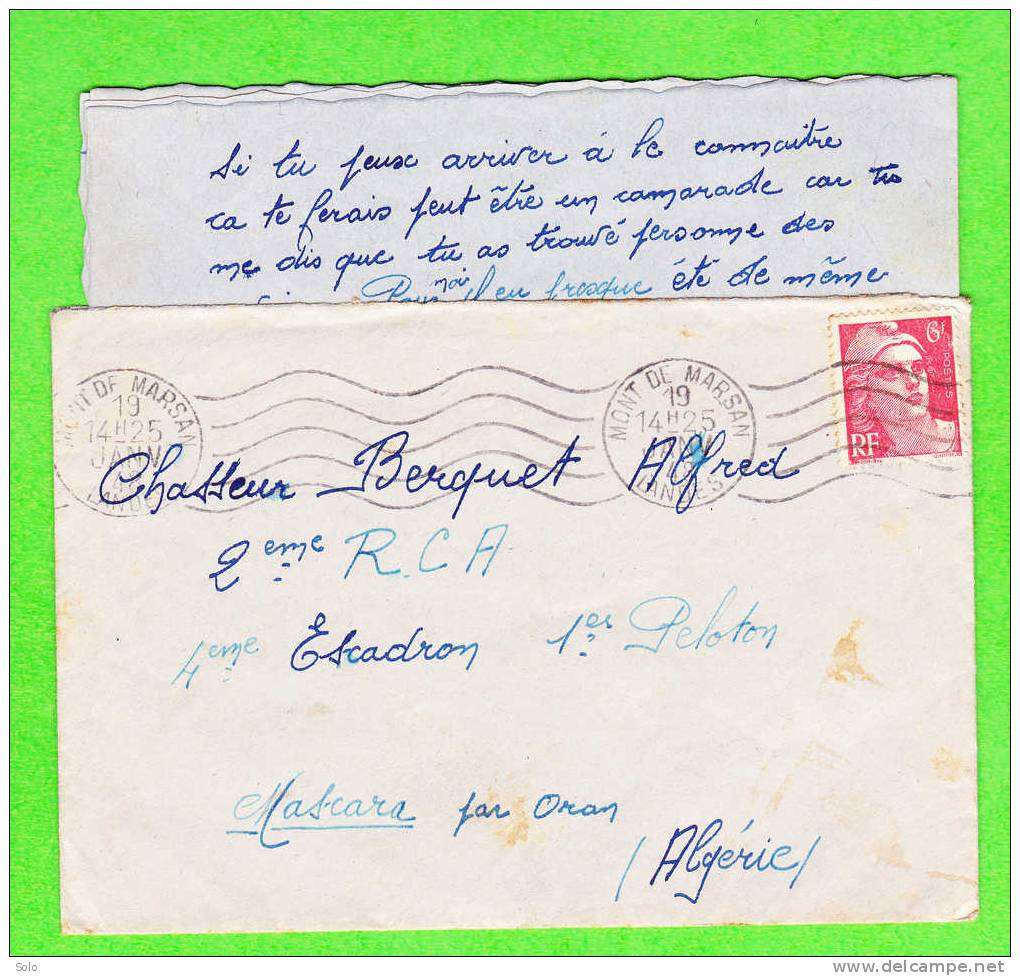 Si tu peux arriver à le connaitre
ca te ferais peut être un camarade car tu
me dis que tu as trouvé personne des
Pour moi il eu presque été de même
MONT DE MARSAN
19
14H25
JANV
LANDES
MONT DE MARSAN
19
14H25
JANV
LANDES
6f
POSTES
RF
Chasseur Berquet Alfred
2eme R.C.A
4eme Escadron 1er Peloton
Mascara par Oran
(Algérie)
Solo
www.delcampe.net